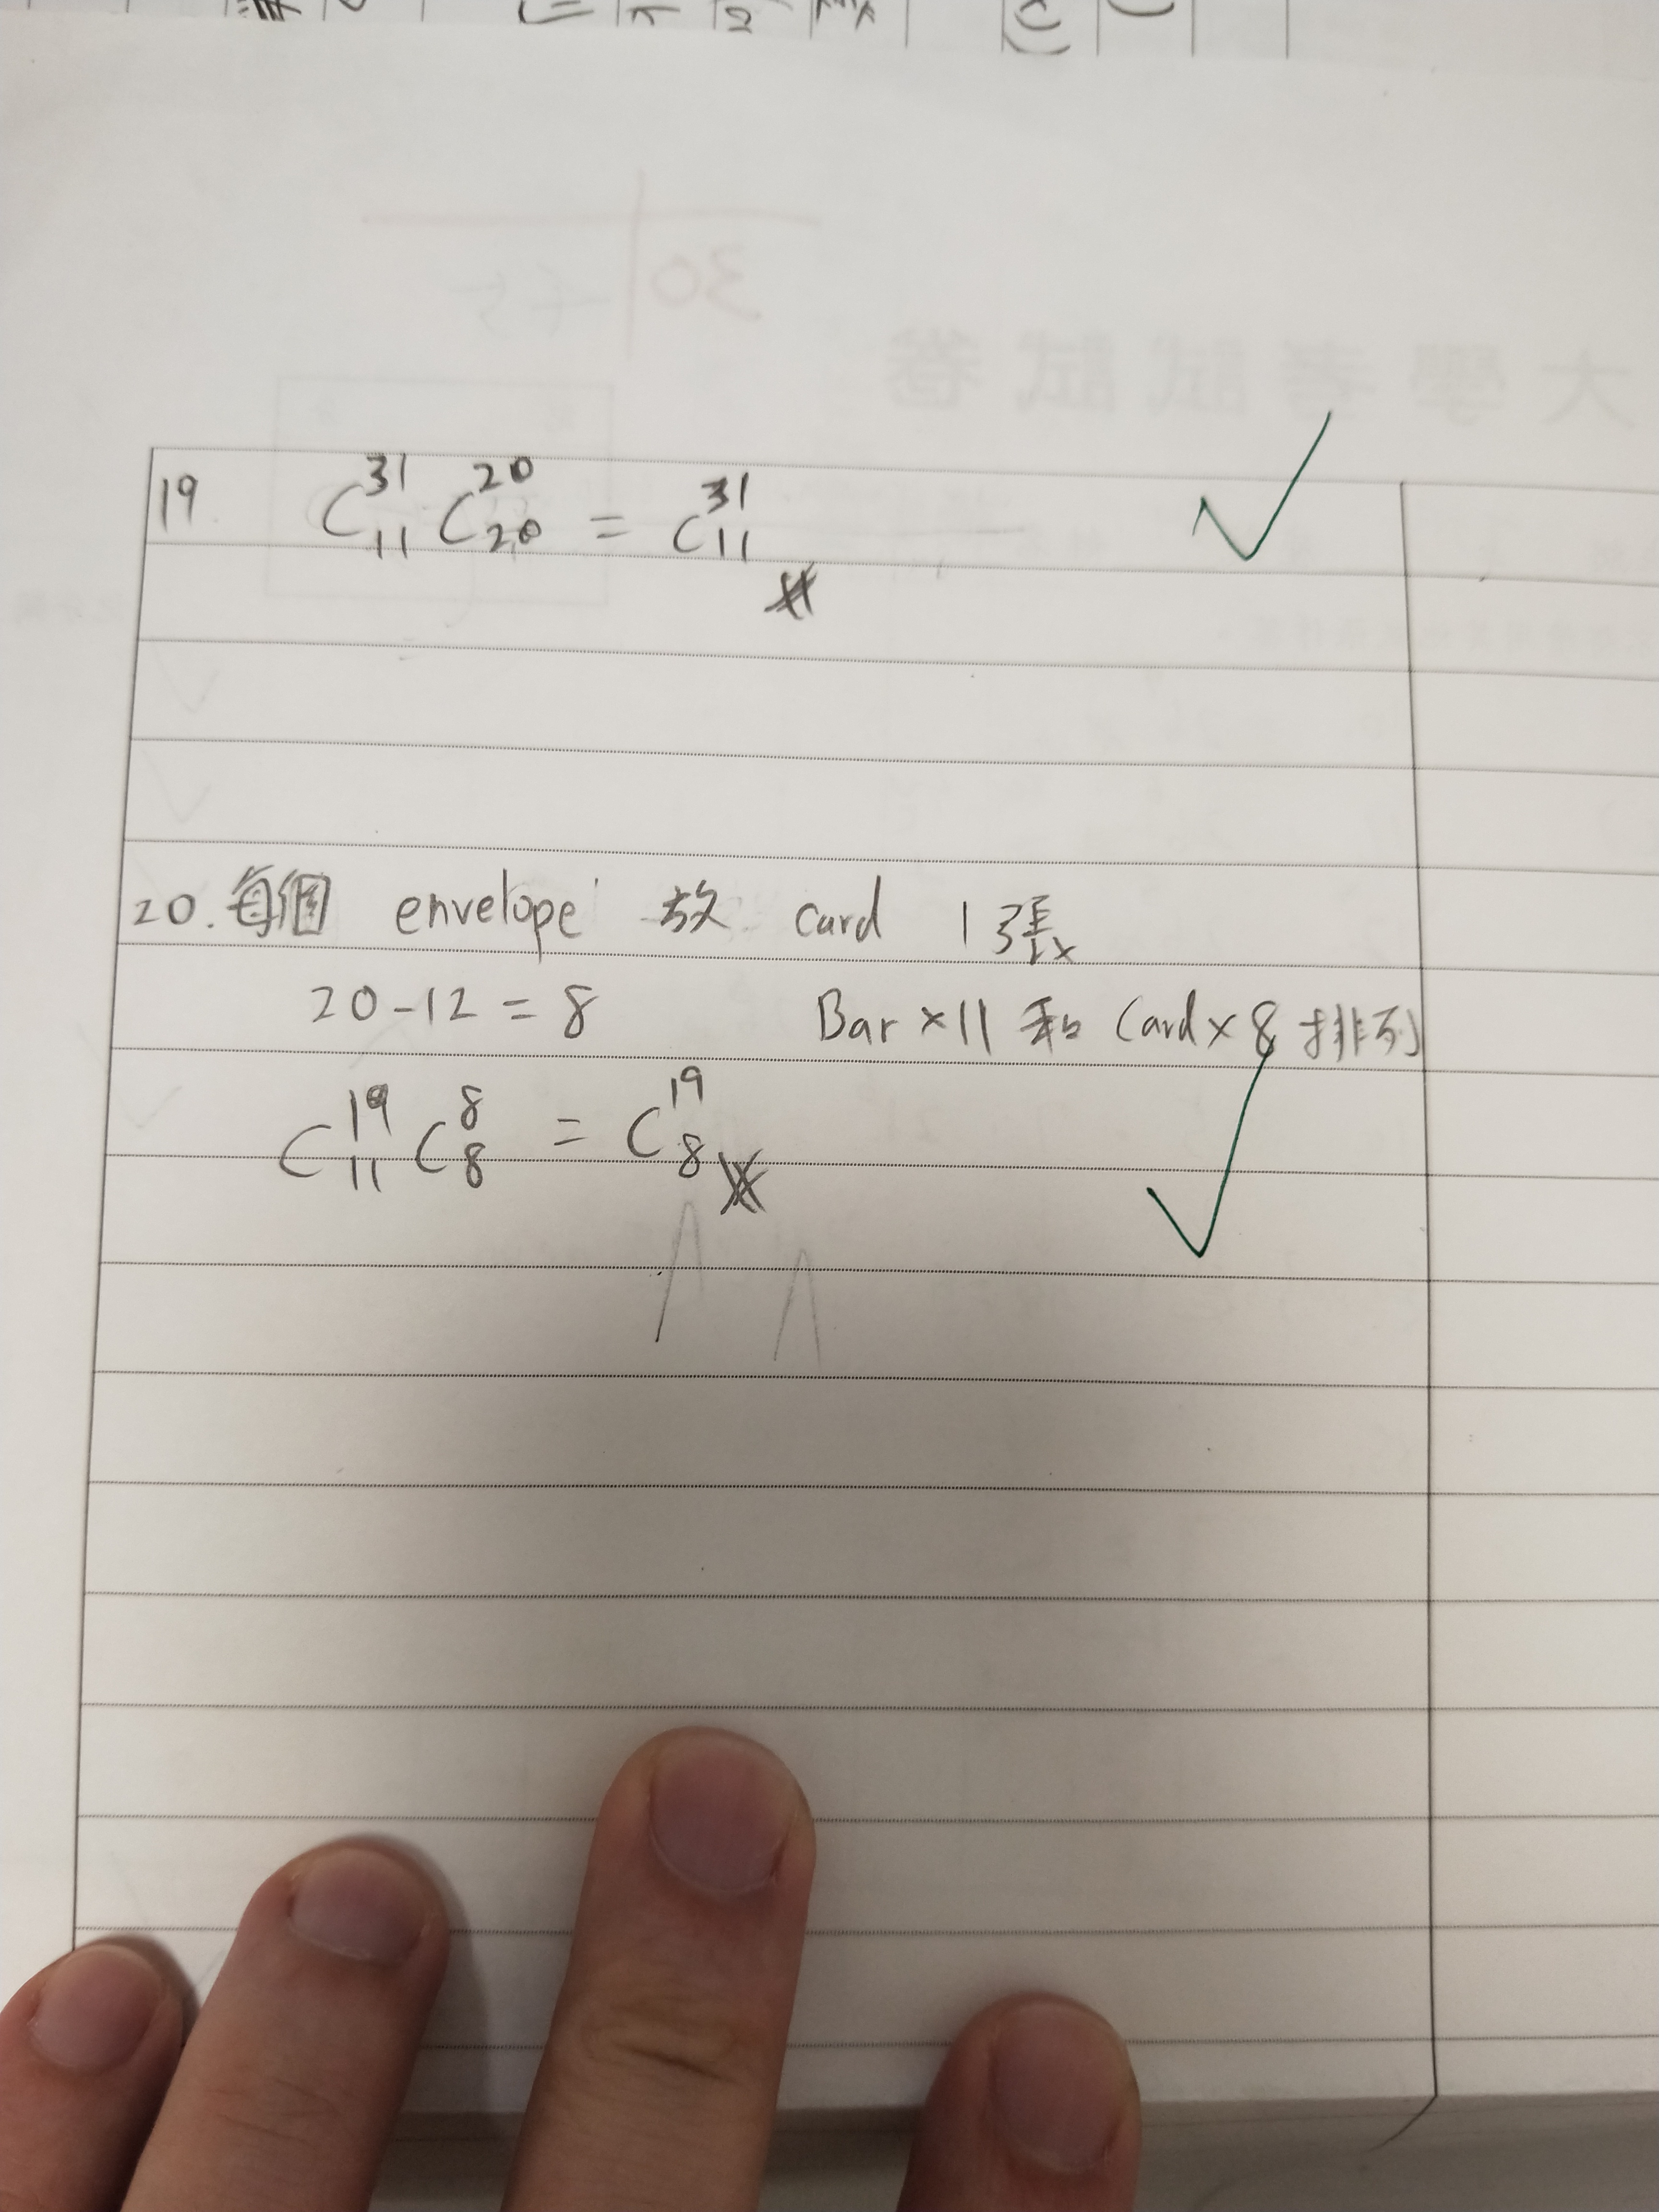 大學考試試卷
19 C³¹₁₁ C²⁰₂₀ = C³¹₁₁
20. 每個 envelope 放 card 1張
20-12=8 Bar×11 和 Card×8 排列
C¹⁹₁₁ C⁸₈ = C¹⁹₈